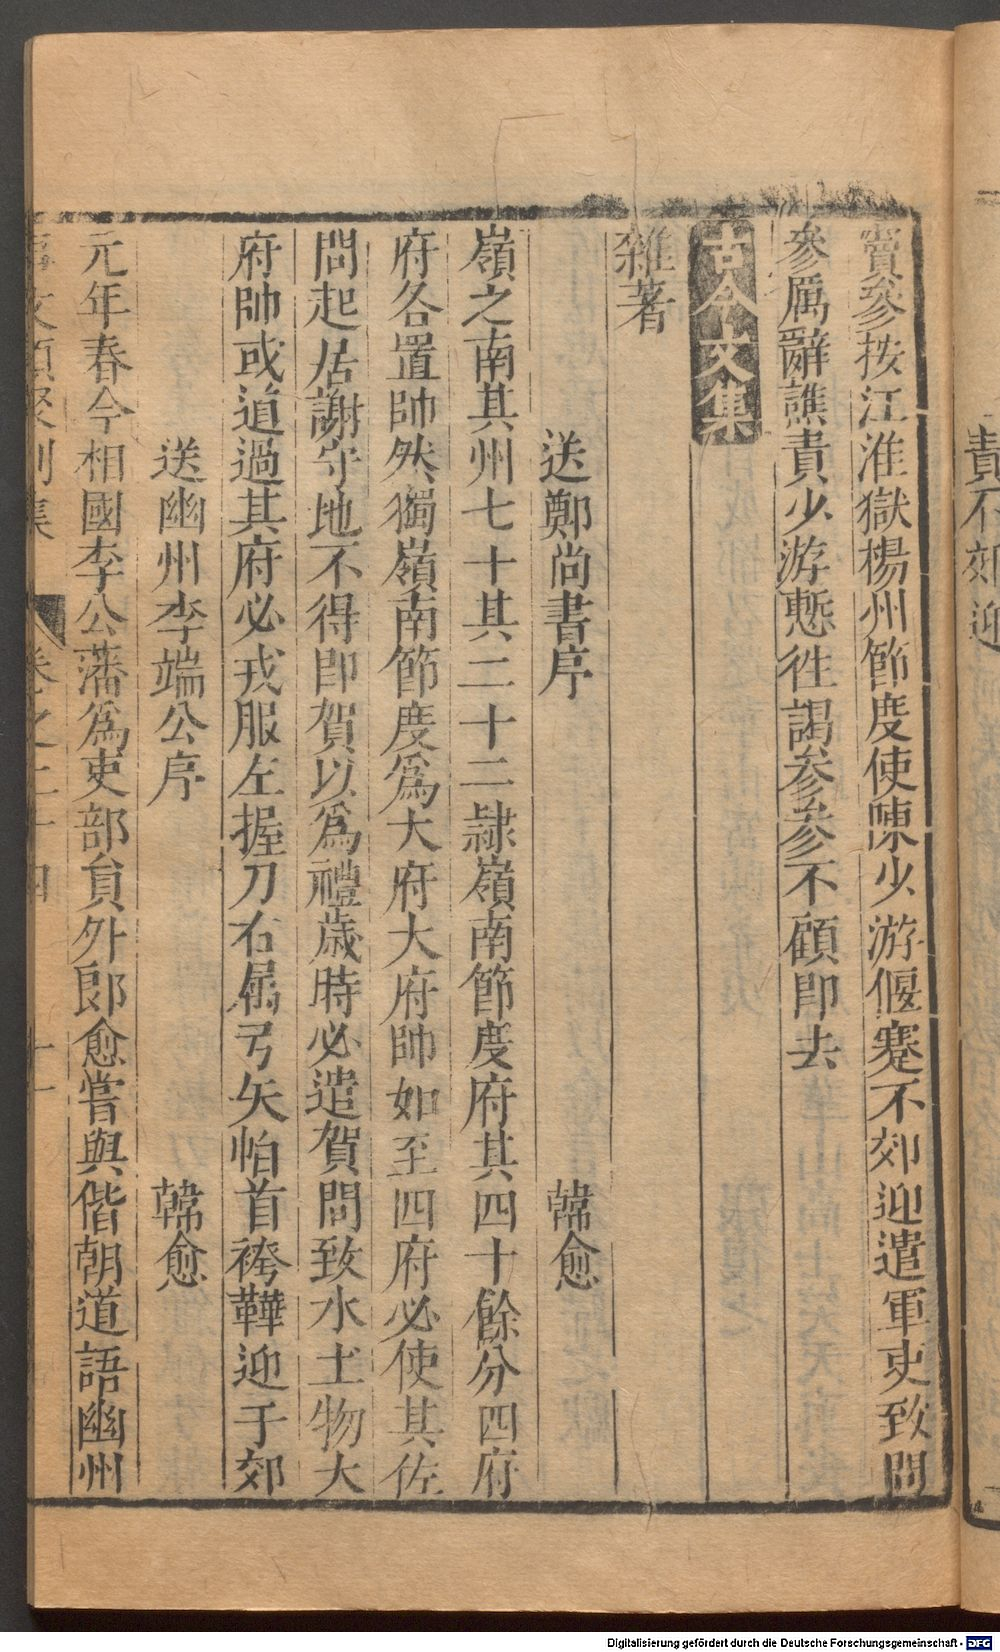 責不郊迎
竇參按江淮獄楊州節度使陳少游偃蹇不郊迎遣軍吏致問
參厲辭譙責少游慙徃謁參參不顧即去
古今文集
雜著
送鄭尚書序 韓愈
嶺之南其州七十其二十二隷嶺南節度府其四十餘分四府
府各置帥然獨嶺南節度爲大府大府帥如至四府必使其佐
問起居謝守地不得即賀以爲禮歲時必遣賀問致水土物大
府帥或道過其府必戎服左握刀右屬弓矢帕首袴鞾迎于郊
送幽州李端公序 韓愈
元年春今相國李公藩爲吏部貟外郎愈嘗與偕朝道語幽州
事文類聚別集 卷之二十四 十一
Digitalisierung gefördert durch die Deutsche Forschungsgemeinschaft - DFG